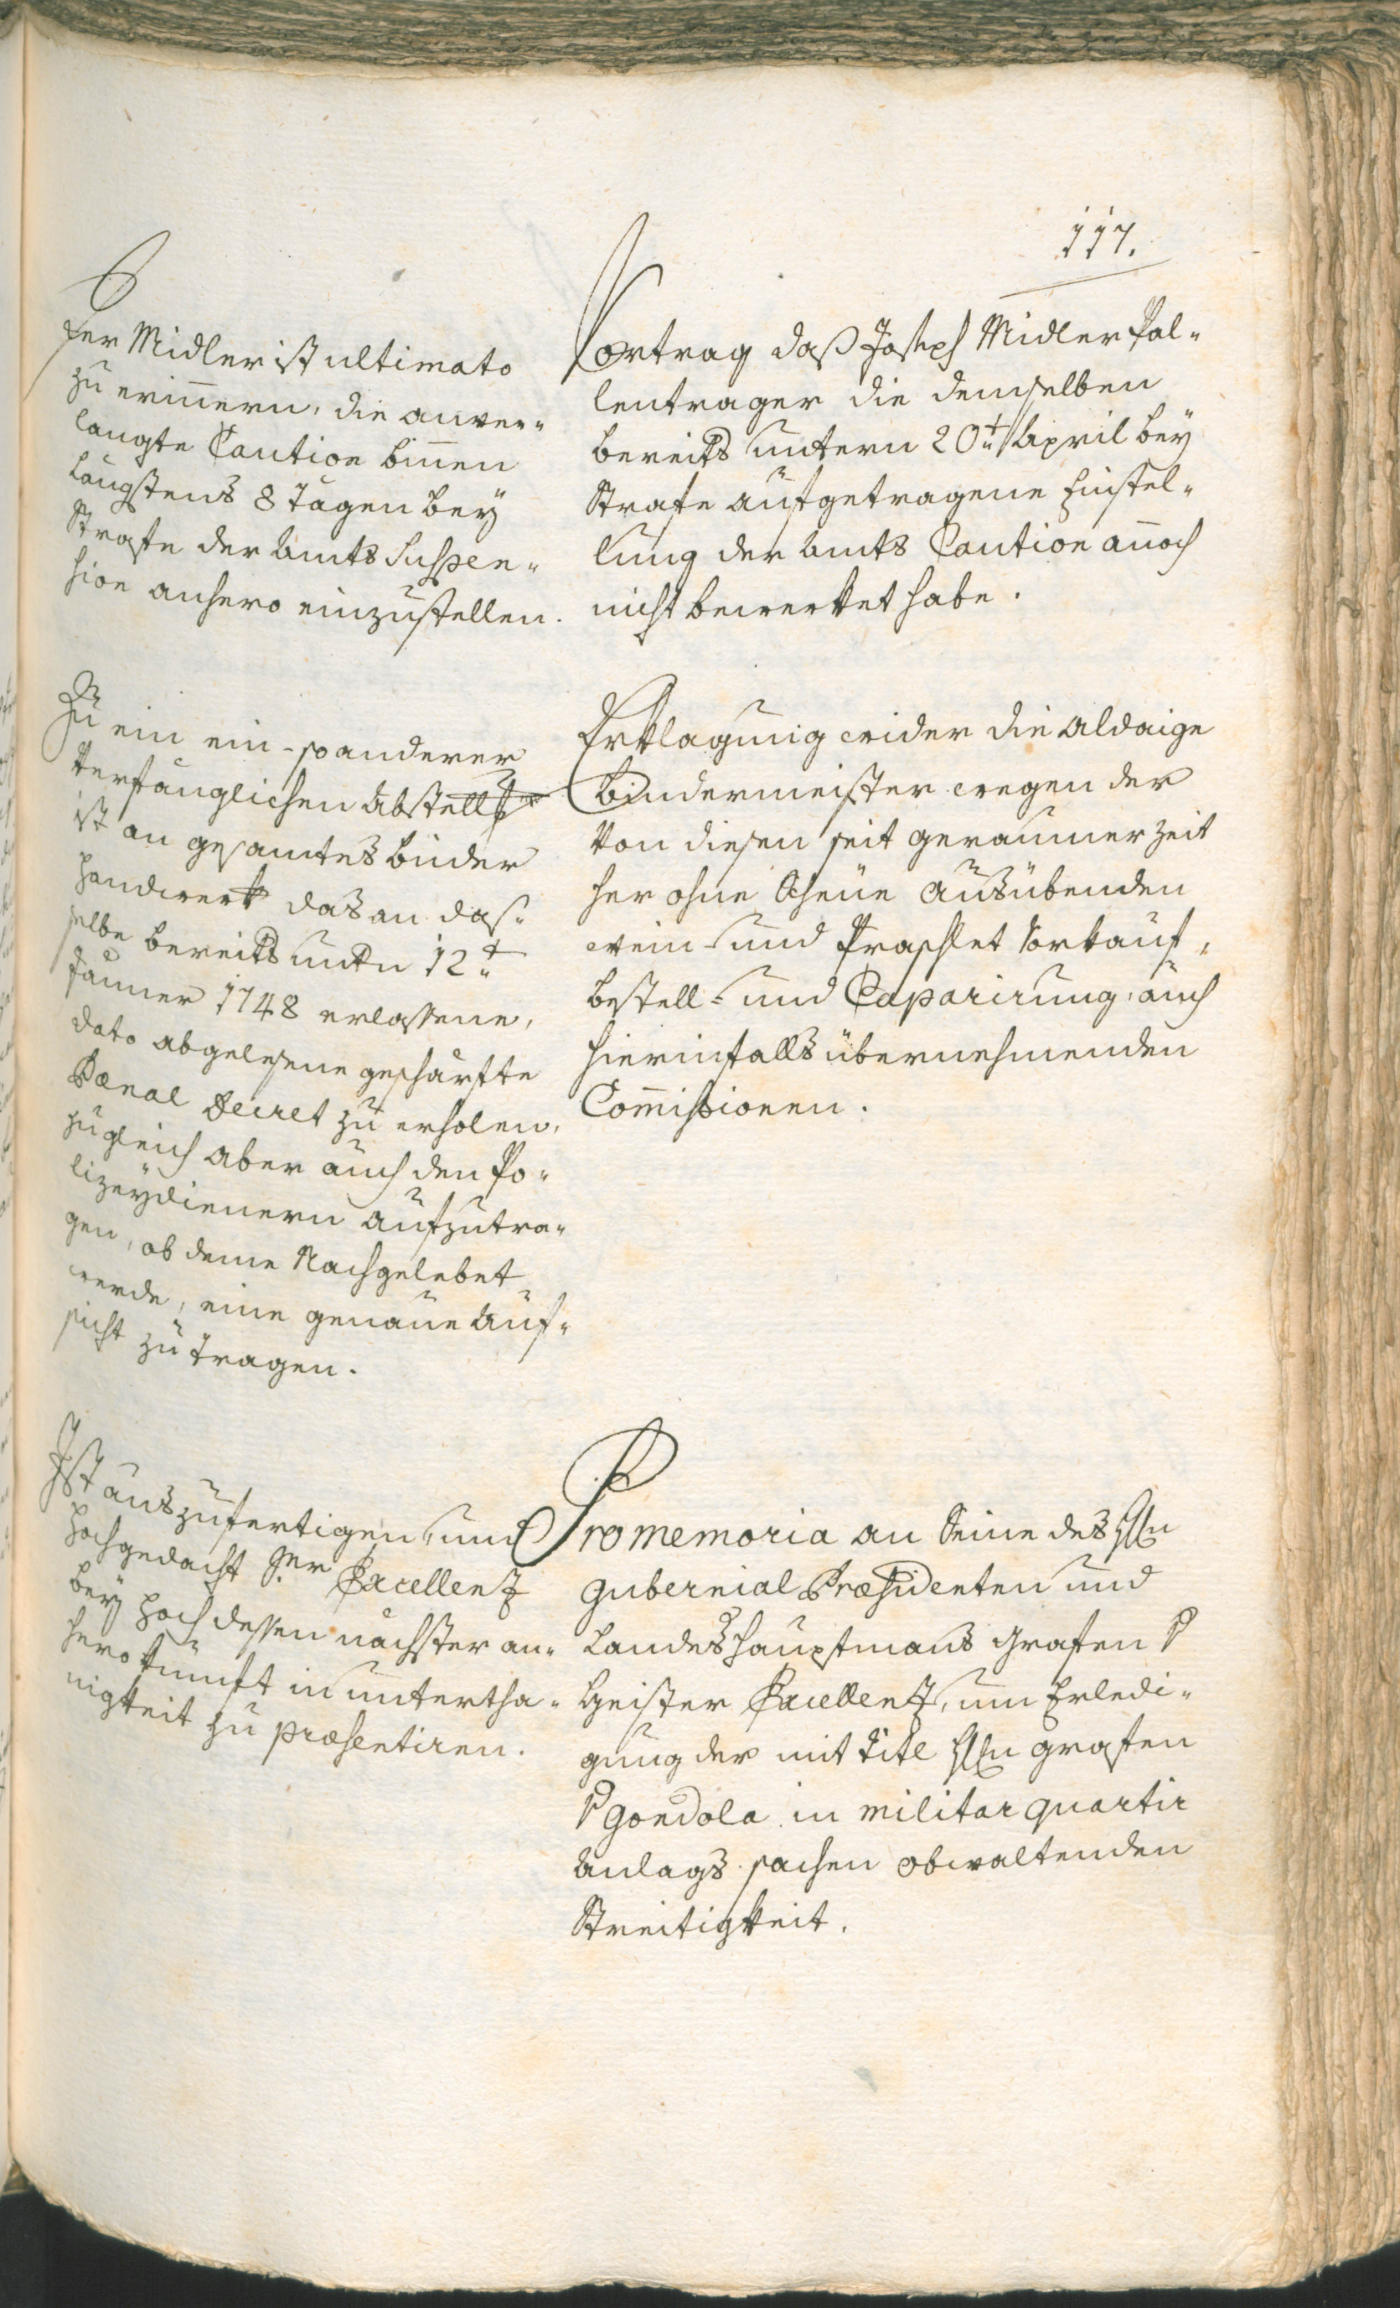 117.
Er Midler ist ultimato
zu erinnern, die anver-
langte Caution binnen
längstens 8 Tägen bey
Strafe der Amts Suspen-
sion anhero einzustellen.
Vortrag daß Joseph Midler Pal-
lentrager die demselben
bereits untern 20t April bey
Strafe aufgetragene Einstel-
lung der Amts Caution annoch
nicht bewerket habe.
Zu ein ein- so anderer
verfänglichen Abstell
ist an gesamtes Binder
Handwerk das an das-
selbe bereits untn 12t
Jänner 1748 erlassene,
dato abgelesene geschärfte
Pænal Decret zu erholen,
zugleich aber auch den Po-
lizeÿdienern aufzutra-
gen, ob deme Nachgelebet
werde, eine genaue Auf-
sicht zu tragen.
Erklagung wider die aldaige
Bindermeister wegen der
Von diesen seit geraumer Zeit
her ohne Scheüe ausübenden
Wein- und Praschlet Vorkauf,
bestell- und Caparirung, auch
hierinfalls übernehmenden
Commissionen.
Ist auszufertigen, und
hochgedacht Sr. Excellenz
bey hoch dessen nächster an-
hero kunft in untertha-
nigkeit zu præsentiren.
Pro memoria an Seine des Hln
Gubernial Præsidenten und
Landeshauptmans Grafen v
Heister Excellenz, um Erledi-
gung der mit Titl Hln Grafen
v Gondola in militar quartir
Anlags sachen obwaltenden
Streitigkeit.